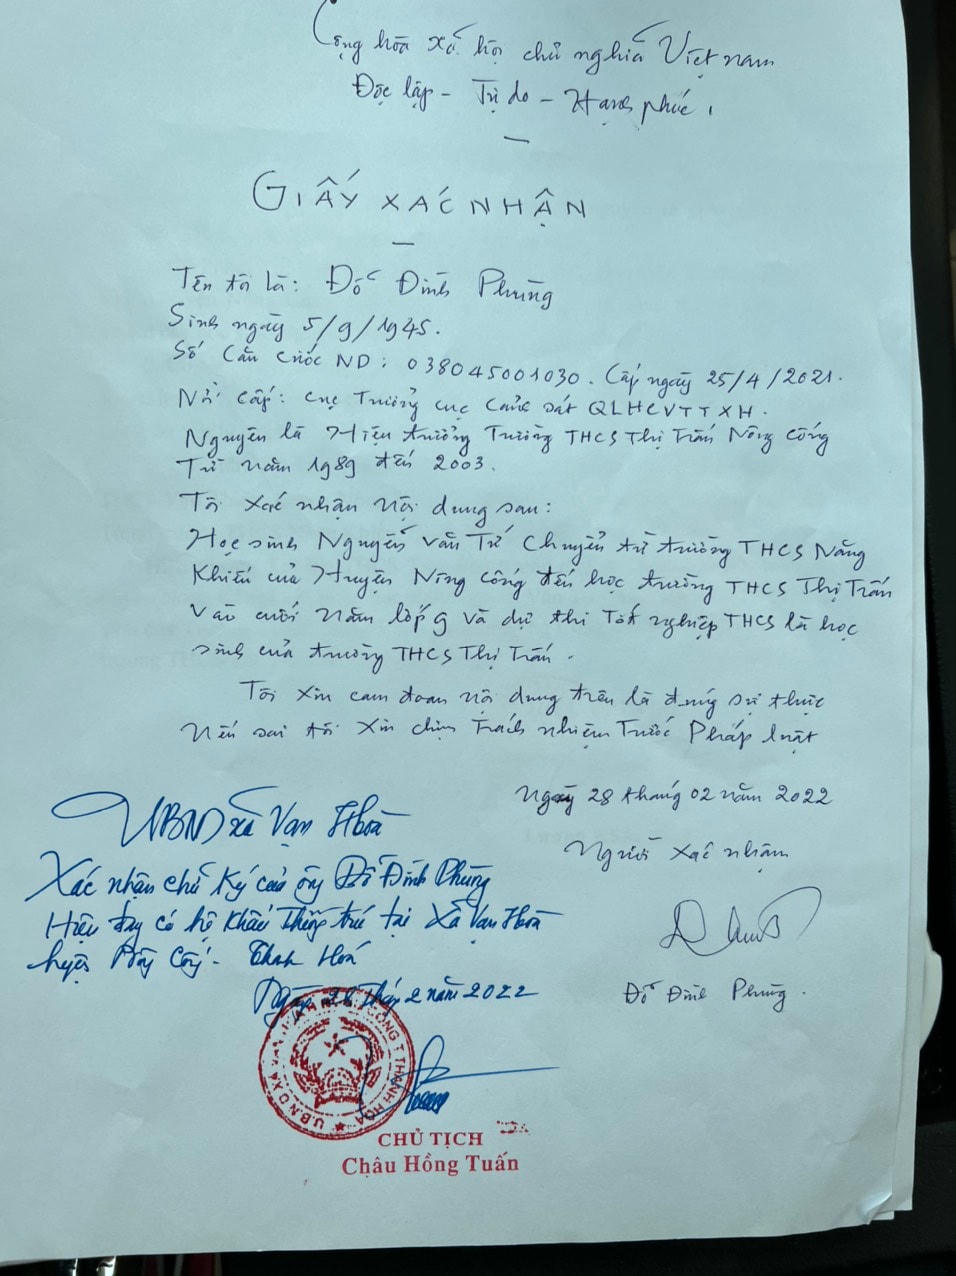 Cộng hòa xã hội chủ nghĩa Việt nam
Độc lập - Tự do - Hạnh phúc.
GIẤY XÁC NHẬN
Tên tôi là: Đỗ Đình Phùng
Sinh ngày 5/9/1945.
Số Căn Cước ND: 038045001030. Cấp ngày 25/4/2021.
Nơi cấp: Cục Trưởng cục cảnh sát QLHCVTTXH.
Nguyên là Hiệu trưởng Trường THCS Thị Trấn Nông Cống
Từ năm 1989 đến 2003.
Tôi xác nhận nội dung sau:
Học sinh Nguyễn Văn Tứ Chuyển từ trường THCS Năng
Khiếu của Huyện Nông Cống đến học trường THCS Thị Trấn
Vào cuối năm lớp 9 và dự thi Tốt nghiệp THCS là học
sinh của trường THCS Thị Trấn.
Tôi xin cam đoan nội dung trên là đúng sự thực
Nếu sai tôi xin chịu trách nhiệm trước Pháp luật
Ngày 28 tháng 02 năm 2022
Người xác nhận
Đỗ Đình Phùng.
UBND xã Vạn Hòa
Xác nhận chữ Ký của ông Đỗ Đình Phùng
Hiện đang có hộ khẩu thường trú tại Xã Vạn Hòa
huyện Nông Cống - Thanh Hoá
Ngày 28 tháng 2 năm 2022
CHỦ TỊCH
Châu Hồng Tuấn